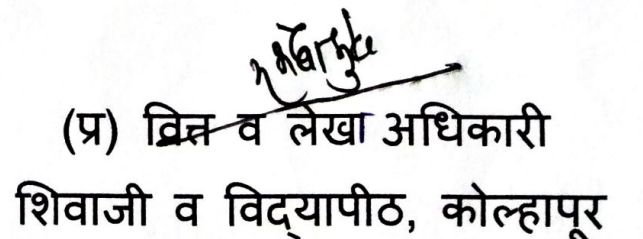 (प्र) वित्त व लेखा अधिकारी
शिवाजी व विद्यापीठ, कोल्हापूर